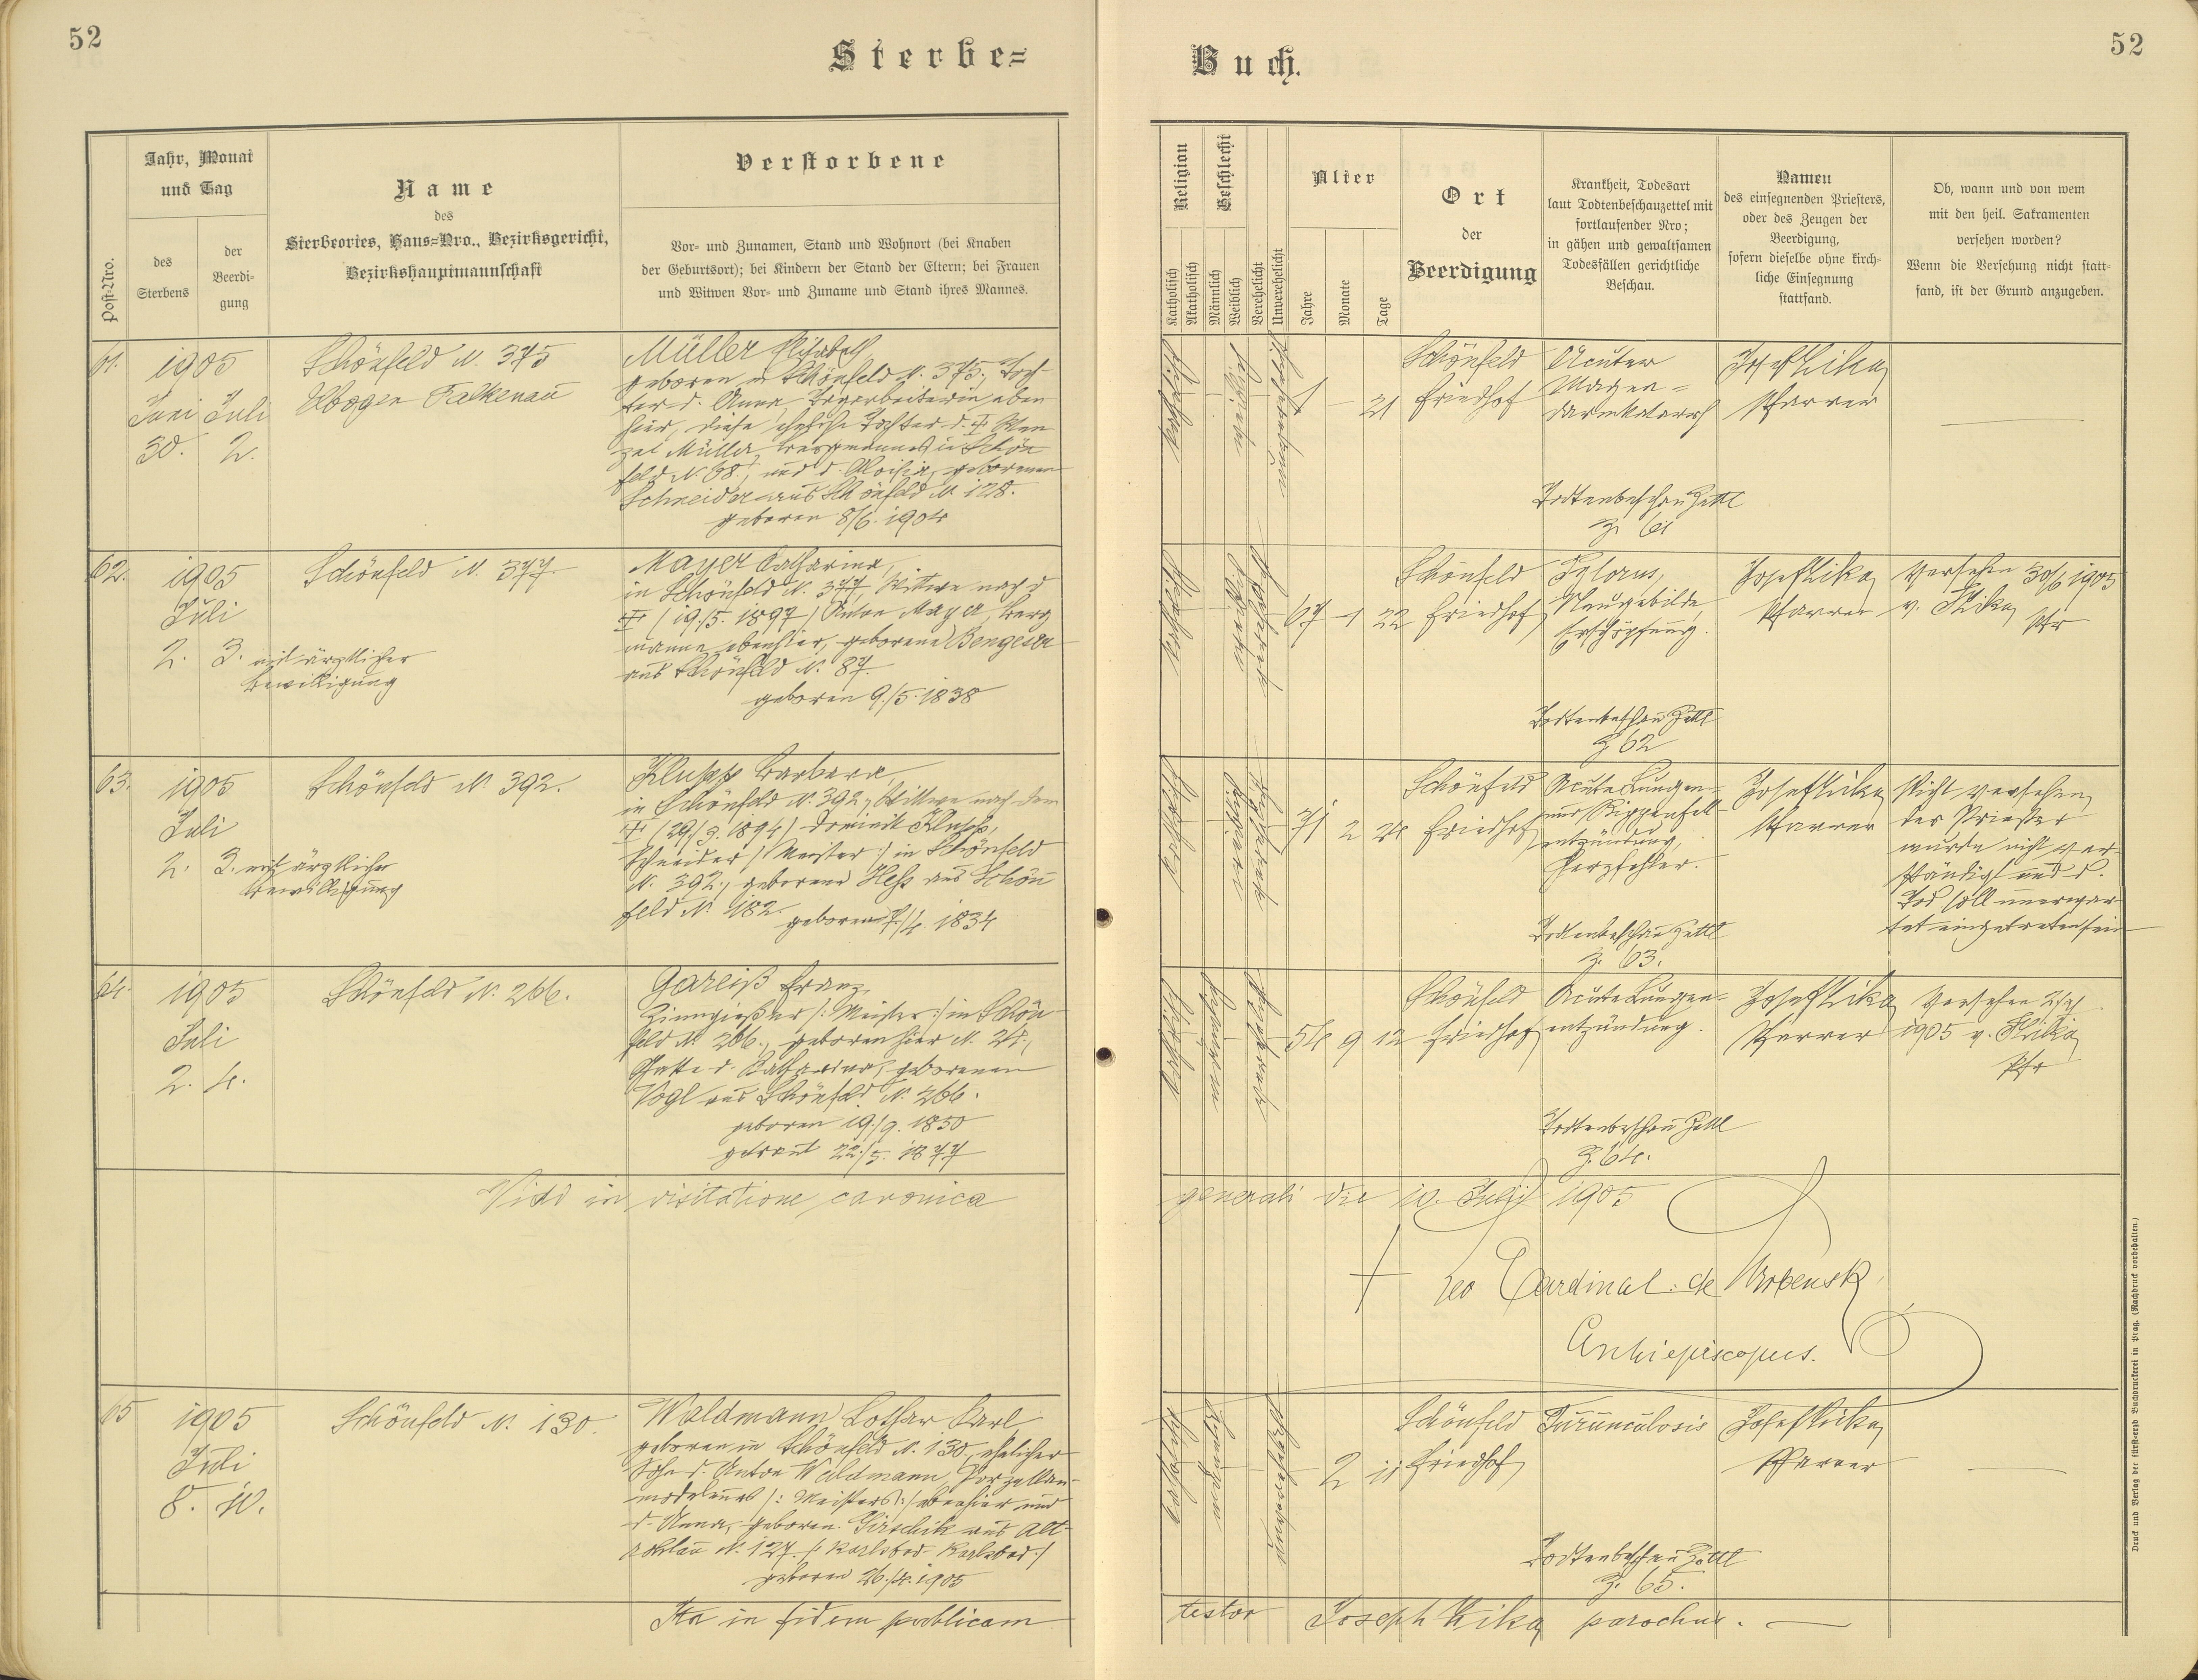 52
Sterbe=
Buch.
52
Post-Nro.
Jahr, Monat
und Tag
des
Sterbens
der
Beerdi-
gung
Name
des
Sterbeortes, Haus=Nro., Bezirksgericht,
Bezirkshauptmannschaft
Verstorbene
Vor- und Zunamen, Stand und Wohnort (bei Knaben
der Geburtsort); bei Kindern der Stand der Eltern; bei Frauen
und Witwen Vor- und Zuname und Stand ihres Mannes.
Religion
Katholisch
Akatholisch
Geschlecht
Männlich
Weiblich
Verehelicht
Unverehelicht
Alter
Jahre
Monate
Tage
Ort
der
Beerdigung
Krankheit, Todesart
laut Todtenbeschauzettel mit
fortlaufender Nro;
in gähen und gewaltsamen
Todesfällen gerichtliche
Beschau.
Namen
des einsegnenden Priesters,
oder des Zeugen der
Beerdigung,
sofern dieselbe ohne kirch-
liche Einsegnung
stattfand.
Ob, wann und von wem
mit den heil. Sakramenten
versehen worden?
Wenn die Versehung nicht statt-
fand, ist der Grund anzugeben.
61.
1905
Juni Juli
30. 2.
Schönfeld N. 375
Elbogen Falkenau
Müller Elisabeth,
geboren in Schönfeld N. 375, Toch
ter d. Anna, Tagarbeiterin eben
hier, diese eheliche Tochter d. ‡ Wen
zel Müller, Bergmannes in Schön
feld N. 68, und d. Aloisia, geborenen
Schneider aus Schönfeld N. 128.
geboren 8/6. 1904
katholisch
weiblich
1 – 21
Schönfeld
Friedhof
Acuter
Magen-
darmkatarrh
Todtenbeschau Zettl
Z. 61
Josef Kika
Pfarrer
62.
1905
Juli
2. 3. mit ärztlicher
Bewilligung
Schönfeld N. 377.
Mayer Catharina,
in Schönfeld N. 377, Wittwe nach d
‡ (19./5. 1897) Anton Mayer, Berg
mann ebenhier, geborene
aus Schönfeld N. 87.
geboren 9./5. 1838
katholisch
67 1 22
Schönfeld
Friedhof
Pylorus,
Neugebilde,
Erschöpfung.
Todtenbeschau Zettl
Z 62
Josef Kika
Pfarrer
Versehen 30/6 1905
v. Kika
Pfr
63.
1905
Juli
2. 3. mit ärztlicher
Bewilligung
Schönfeld N. 392.
Barbara,
in Schönfeld N. 392, Wittwe nach dem
‡ (29./3. 1894) Dominik
Schneider (Meister:) in Schönfeld
N. 392., geborene Heß aus Schön
feld N. 182.
geboren 7./4. 1834
katholisch
71 2 24
Schönfeld
Friedhof
Acute Lungen-
und Rippenfell-
entzündung,
Herzfehler.
Todtenbeschau Zettl
Z. 63.
Josef Kika
Pfarrer
Nicht versehen,
der Priester
wurde nicht ver-
ständigt und d.
Tod soll unerwar-
tet eingetreten sein
64.
1905
Juli
2. 4.
Schönfeld N. 266.
Gareiß Franz,
Zinngießer (: Meister:) in Schön
feld N. 266., geboren hier N. 24.,
Gatte d. Katharina, geborenen
Vogl aus Schönfeld N. 266.
geboren 19./9. 1850
getraut 22./5. 1877
katholisch
54 9 12
Schönfeld
Friedhof
Acute Lungen-
entzündung.
Todtenbeschau Zettl
Z. 64.
Josef Kika
Pfarrer
Versehen 2/7
1905 v. Kika
Pfr
Vidi in visitatione canonica
generali die 10. Julii 1905
† Leo Cardinal: de Skrbensky
Archiepiscopus.
65
1905
Juli
8. 10.
Schönfeld N. 130.
Waldmann Lothar Karl
geboren in Schönfeld N. 130, ehelicher
Sohn d. Anton Waldmann, Porzellan-
(: Meisters:) ebenhier und
d. Anna, geboren. Girschik aus Alt-
rohlau N. 127. (: Karlsbad- Karlsbad:)
geboren 26./4. 1905
katholisch
2 11
Schönfeld
Friedhof
Furunculosis
Todtenbeschau Zettl
Z. 65.
Josef Kika
Pfarrer
Ita in fidem publicam
testor Joseph Kika parochus.
Druck und Verlag der fürst-erzb Buchdruckerei in Prag. (Nachdruck vorbehalten.)